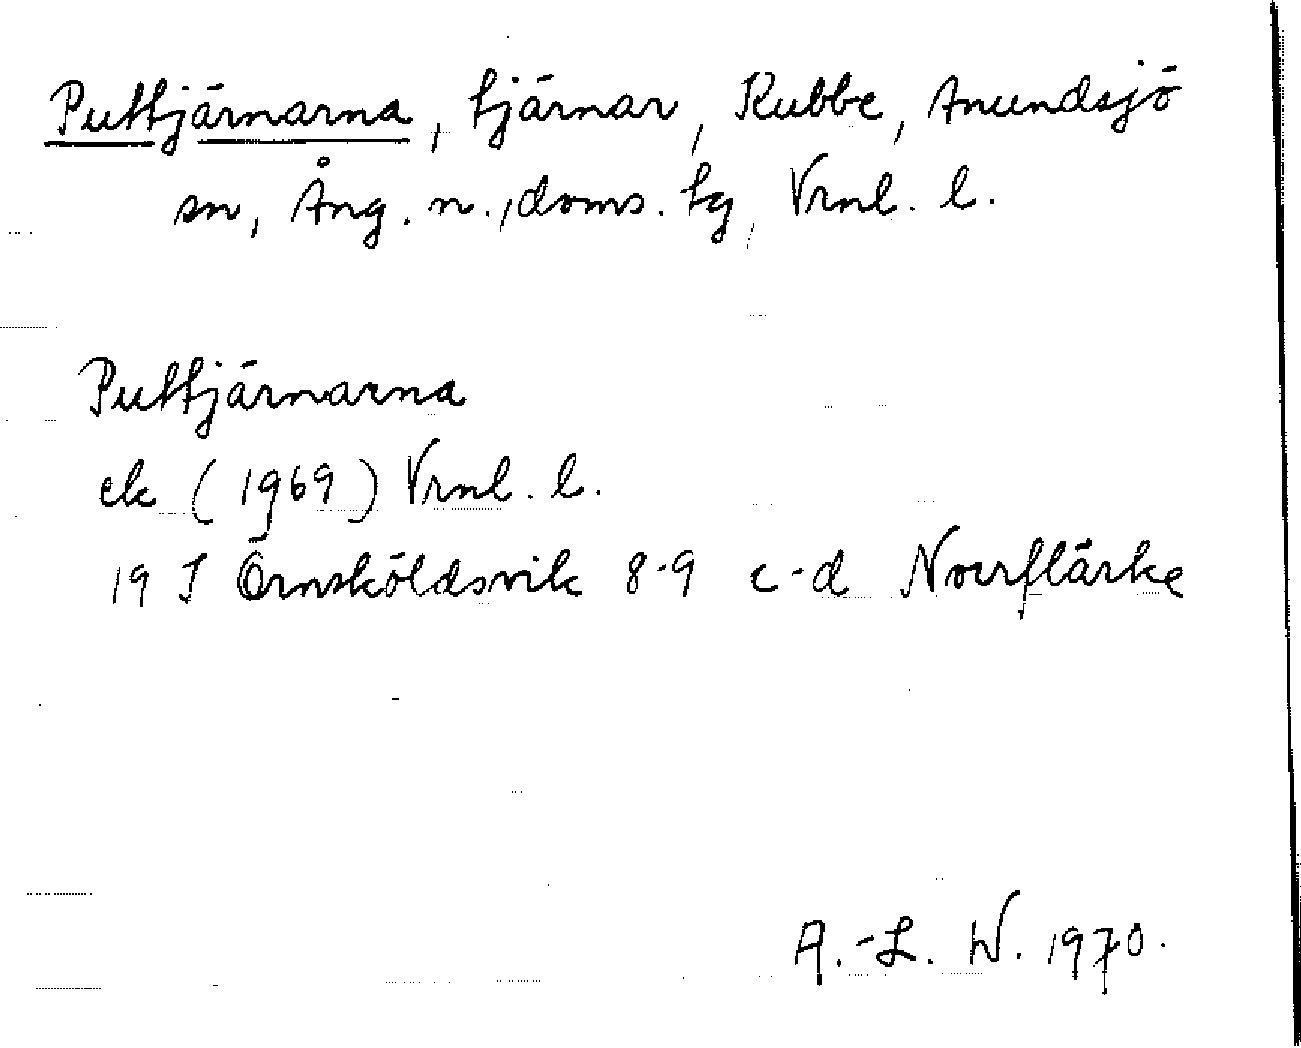 Puttjärnarna, tjärnar, Kubbe, Anundsjö
sn, Ång. n., doms. tg, Vrnl. l.
Puttjärnarna
ek (1969) Vrnl. l.
19 I Örnsköldsvik 8-9 c-d Norrflärke
A.-L. W. 1970.